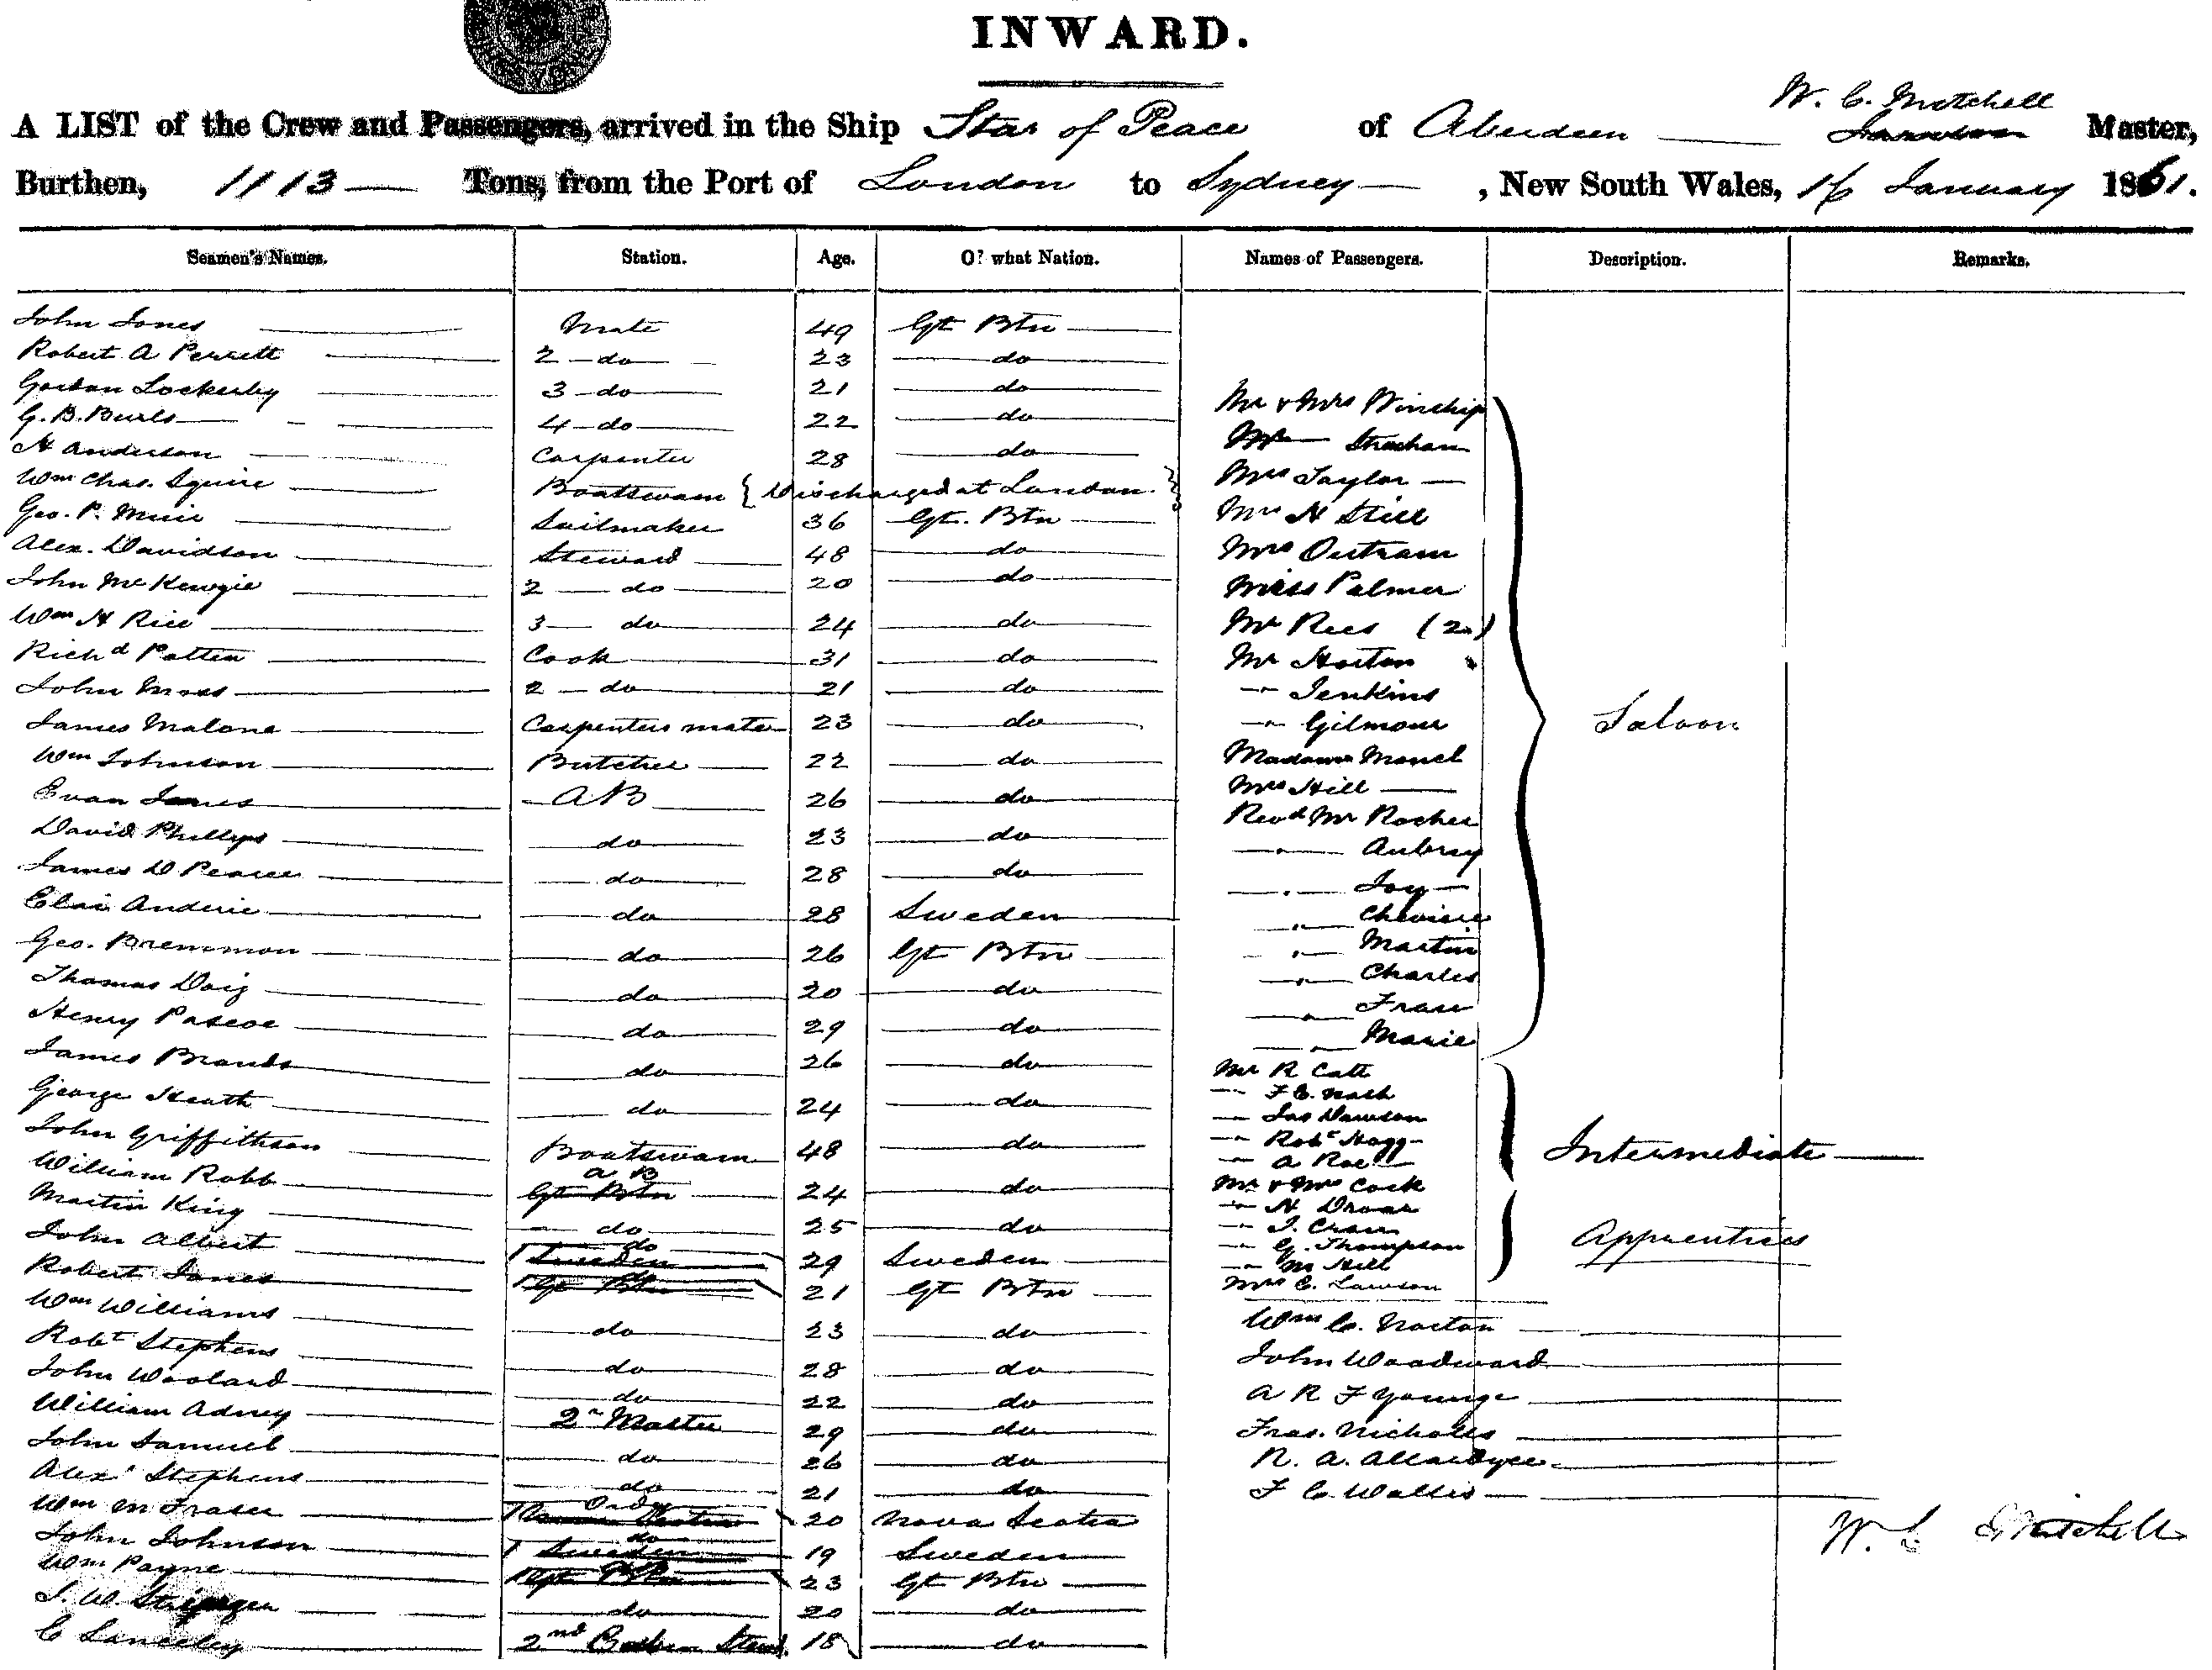 INWARD.
W. C. Mitchell
A LIST of the Crew and Passengers, arrived in the Ship Star of Peace of Aberdeen Master,
Burthen, 1113 Tons, from the Port of London to Sydney , New South Wales, 16 January 1861.
Seamen's Names. Station. Age. Of what Nation. Names of Passengers. Description. Remarks.
John Jones Mate 49 Gt Btn
Robert A Perrett 2 do 23 do
Gordon Lockerby 3 do 21 do
Mr & Mrs Winship
G. B. Burls 4 do 22 do
Strachan
H Anderson Carpenter 28 do
Mrs Taylor
Wm Chas. Squire Boatswain { Discharged at London. }
Mrs H Still
Geo. P. Muir Sailmaker 36 Gt. Btn
Alex. Davidson Steward 48 do Mrs Outram
John McKewgie 2 do 20 do Miss Palmer
Wm H Rice 3 do 24 do Mr Rees (2)
Richd Patten Cook 31 do Mr Horton
John Moss 2 do 21 do " Jenkins
James Malone Carpenters mate 23 do " Gilmour Saloon
Wm Johnson Butcher 22 do Madame Monel
Evan Jones AB 26 do Mrs Hill
Revd Mr Rocher
David Phillips do 23 do " Aubry
James D Pearce do 28 do " Joy
Elai Anderie do 28 Sweden
" Martin
Geo. Bremmon do 26 Gt Btn
" Charles
Thomas Doig do 20 do
Henry Pascoe do 29 do " Marie
James Brands do 26 do Mr R Catt
" F E. Nash
George Heath do 24 do " Jas Dawson
" Robt Hogg
John Griffithson Boatswain 48 do " A Roe Intermediate
A B
William Robb Gt Btn 24 do Mr & Mrs Cock
Martin King do 25 do
" G. Thompson Apprentices
do
John Albert Sweden 29 Sweden " M Hill
Robert Jones Gt Btn 21 Gt Btn Mrs E. Lawson
Wm Williams do 23 do Wm C. Norton
Robt Stephens do 28 do John Woodward
John Wooland do 22 do A R F Younge
William Adney 2n Master 29 do Fras. Nicholls
John Samuel do 26 do R. A. Allardyce
Alexr Stephens do 21 do F C. Wallis
Ord
Wm M Fraser 20 Nova Scotia
do
John Johnson Sweden 19 Sweden W. C. Mitchell
Wm Payne Gt Btn 23 Gt Btn
J. W. do 20 do
C Lanceley 2nd 18 do